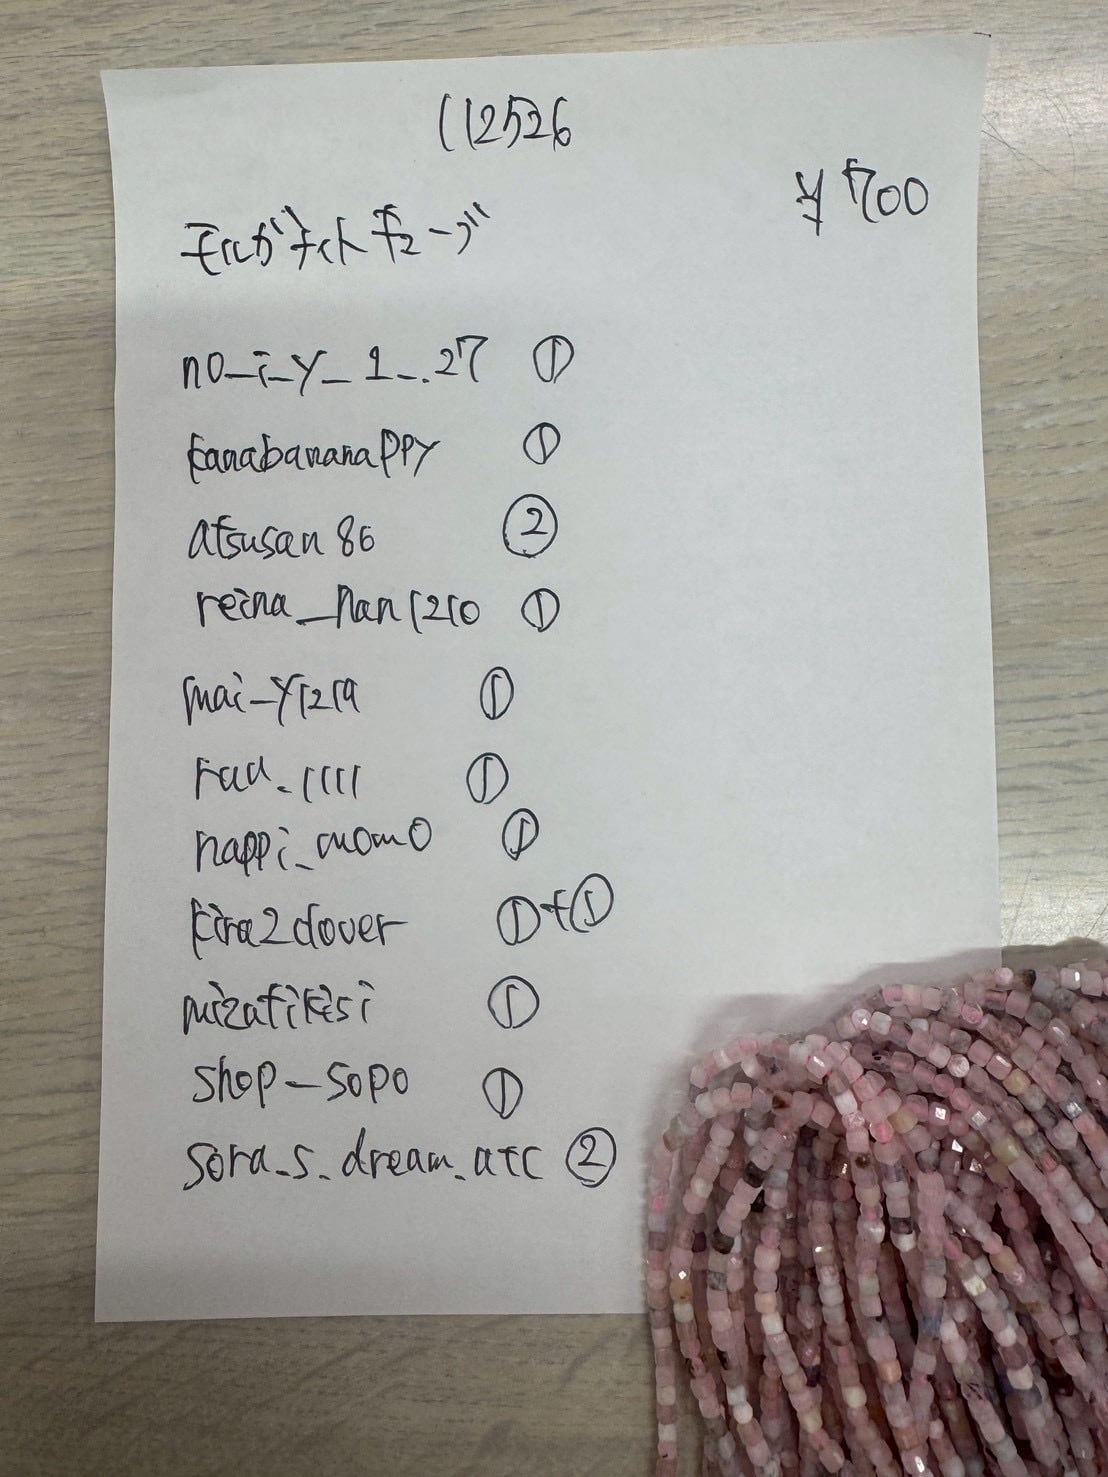 112526
¥700
モルガナイトキューブ
no_i_y_1_.27 ①
kanabananappy ①
atsusan86 ②
reina_nan1210 ①
mai_y1219 ①
rau.1111 ①
nappi_momo ①
kira2clover ①+①
mizafikisi ①
shop_sopo ①
sora_s.dream.arc ②